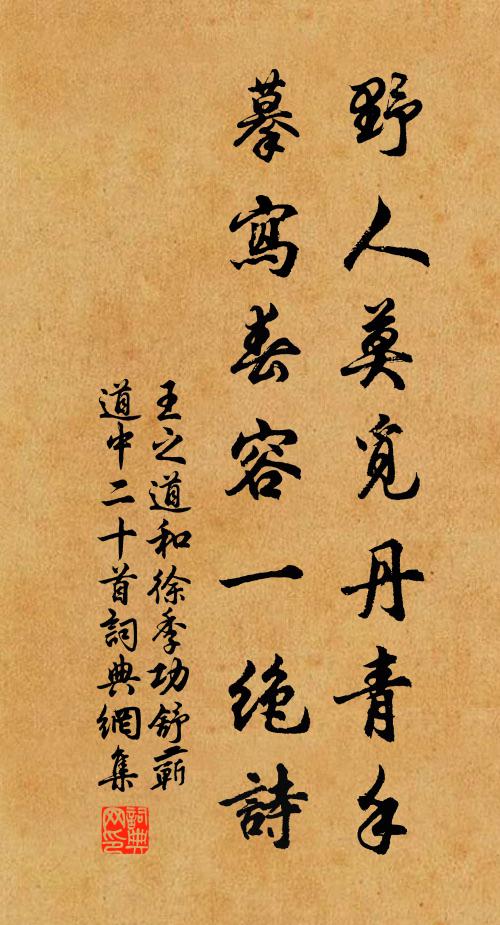 野人莫覓丹青手
摹寫春容一絶詩
王之道和徐季功舒蘄
道中二十首詞典網集
詞典
网印